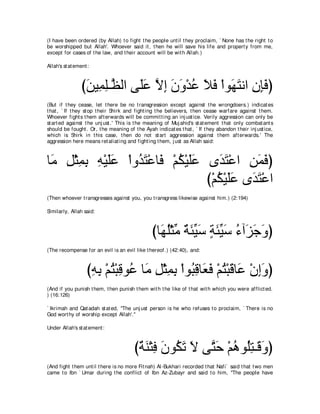 (I have been ordered (by Allah) to fight the people until they proclaim, `None has the right to
be worshipped but Allah'. Whoever said it, then he will save his life and property from me,
except for cases of the law, and their account will be with Allah.)
Allah's statement:
(فَإِنِ انتَهَواْ فَلاَ عُدْوَنَ إِلاَّ عَلَى الظَّـلِمِينَ)
(But if they cease, let there be no transgression except against the wrongdoers.) indicates
that, `If they stop their Shirk and fighting the believers, then cease warfare against them.
Whoever fights them afterwards will be committing an injustice. Verily aggression can only be
started against the unjust.' This is the meaning of Mujahid's statement that only combatants
should be fought. Or, the meaning of the Ayah indicates that, `If they abandon their injustice,
which is Shirk in this case, then do not start aggression against them afterwards.' The
aggression here means retaliating and fighting them, just as Allah said:
(فَمَنِ اعْتَدَى عَلَيْكُمْ فَاعْتَدُواْ عَلَيْهِ بِمِثْلِ مَا
اعْتَدَى عَلَيْكُمْ)
(Then whoever transgresses against you, you transgress likewise against him.) (2:194)
Similarly, Allah said:
(وَجَزَآءُ سَيِّئَةٍ سَيِّئَةٌ مِّثْلُهَا)
(The recompense for an evil is an evil like thereof.) (42:40), and:
(وَإِنْ عَاقَبْتُمْ فَعَاقِبُواْ بِمِثْلِ مَا عُوقِبْتُمْ بِهِ)
(And if you punish them, then punish them with the like of that with which you were afflicted.
) (16:126)
`Ikrimah and Qatadah stated, "The unjust person is he who refuses to proclaim, `There is no
God worthy of worship except Allah'."
Under Allah's statement:
(وَقَـتِلُوهُمْ حَتَّى لاَ تَكُونَ فِتْنَةٌ)
(And fight them until there is no more Fitnah) Al-Bukhari recorded that Nafi` said that two men
came to Ibn `Umar during the conflict of Ibn Az-Zubayr and said to him, "The people have